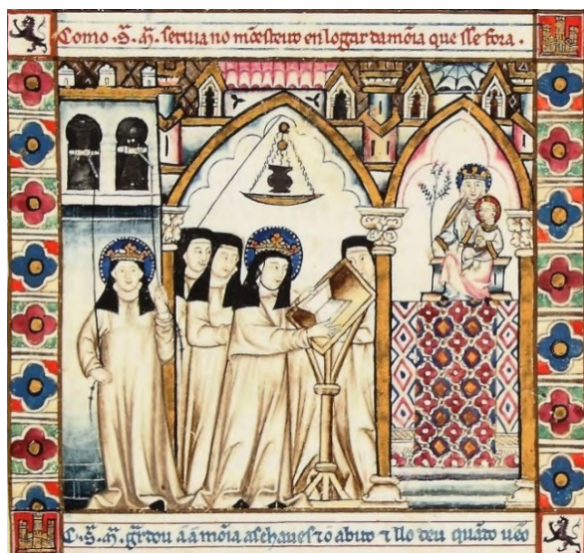 Como. S. M. seruia no mõesteiro en logar da mõia que sse fora.
C. S. M. g̃rdou á á mõia as chaues ⁊ o abito ⁊ llo deu quãdo uẽo